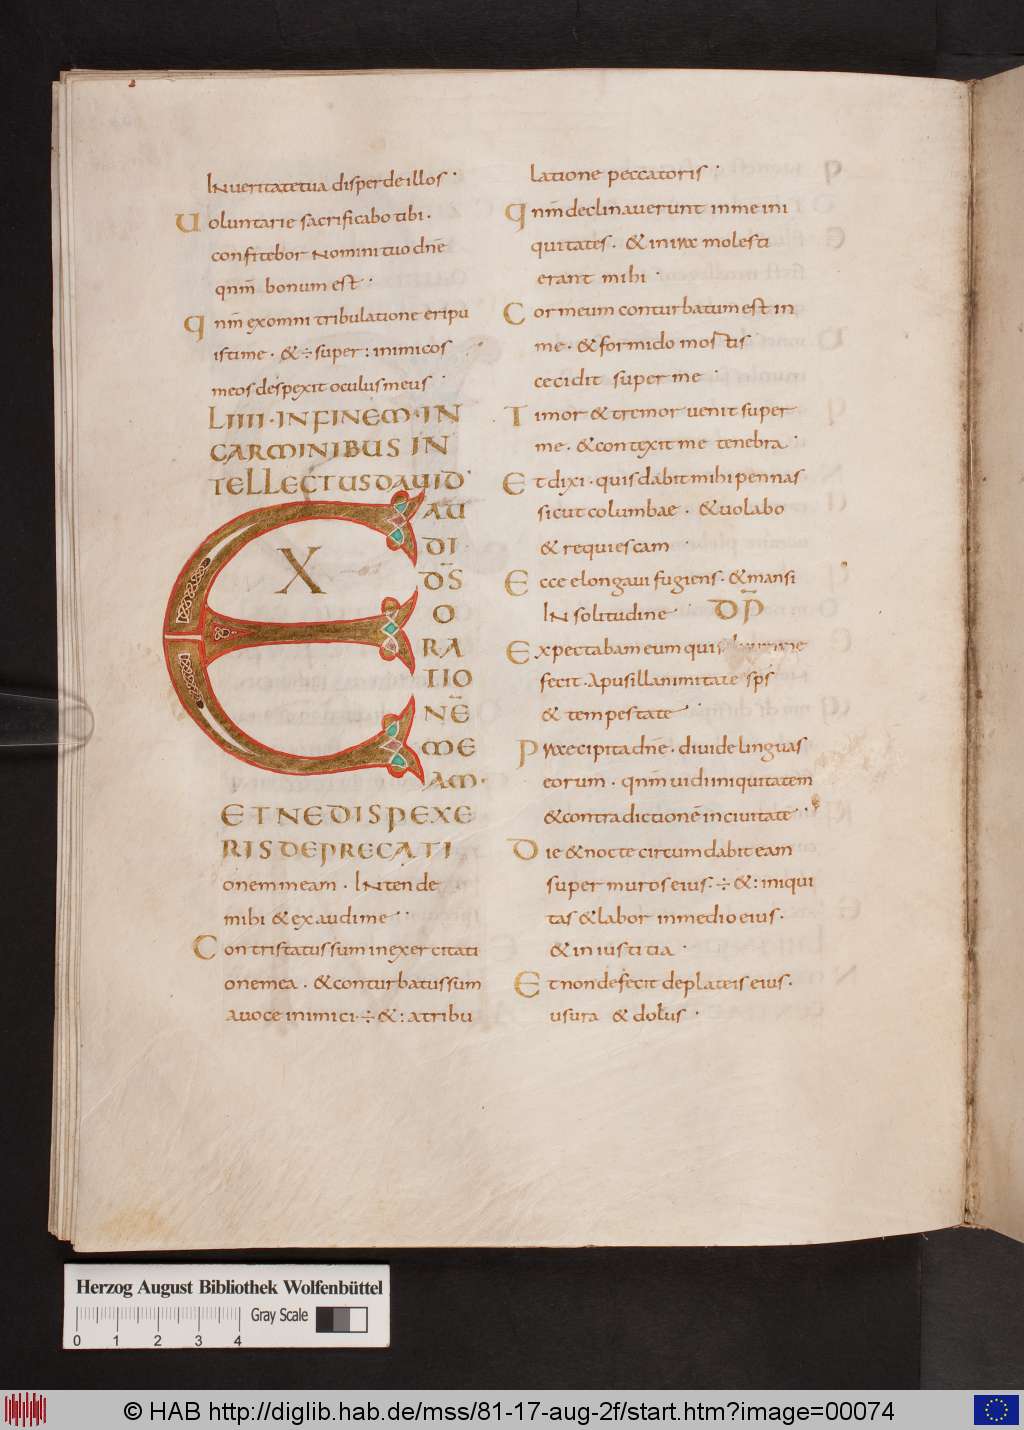 IN ueritate tua disperde illos ·
Uoluntarie sacrificabo tibi ·
confitebor nomini tuo dnē
qnm̄ bonum est ·
Qnm̄ ex omni tribulatione eripu
isti me · & ÷ super : inimicos
meos despexit oculus meus ·
LIIII · IN FINEM · IN
CARMINIBUS IN
TELLECTUS DAUID ·
EX
AU
DI
DS̄
O
RA
TIO
NĒ
ME
AM ·
ET NE DISPEXE
RIS DEPRECATI
onem meam · INtende
mihi & exaudi me ·
Contristatus sum in exercitati
one mea · & conturbatus sum
a uoce inimici · ÷ & : a tribu
latione peccatoris ·
Qnm̄ declinauerunt in me ini
quitates · & in ira molesti
erant mihi ·
Cor meum conturbatum est in
me · & formido mortis
cecidit super me ·
Timor & tremor uenit super
me · & contexit me tenebra ·
Et dixi · quis dabit mihi pennas
sicut columbae · & uolabo
& requiescam ·
Ecce elongaui fugiens · & mansi
IN solitudine · DP̄
Expectabam eum qui
fecit · A pusillanimitate sps̄
& tempestate ·
Praecipita dnē · diuide linguas
eorum · qnm̄ uidi iniquitatem
& contradictionē in ciuitate ·
Die & nocte circumdabit eam
super muros eius : ÷ & : iniqui
tas & labor in medio eius ·
& iniustitia ·
Et non defecit de plateis eius ·
usura & dolus ·
Herzog August Bibliothek Wolfenbüttel
Gray Scale
0 1 2 3 4
© HAB http://diglib.hab.de/mss/81-17-aug-2f/start.htm?image=00074